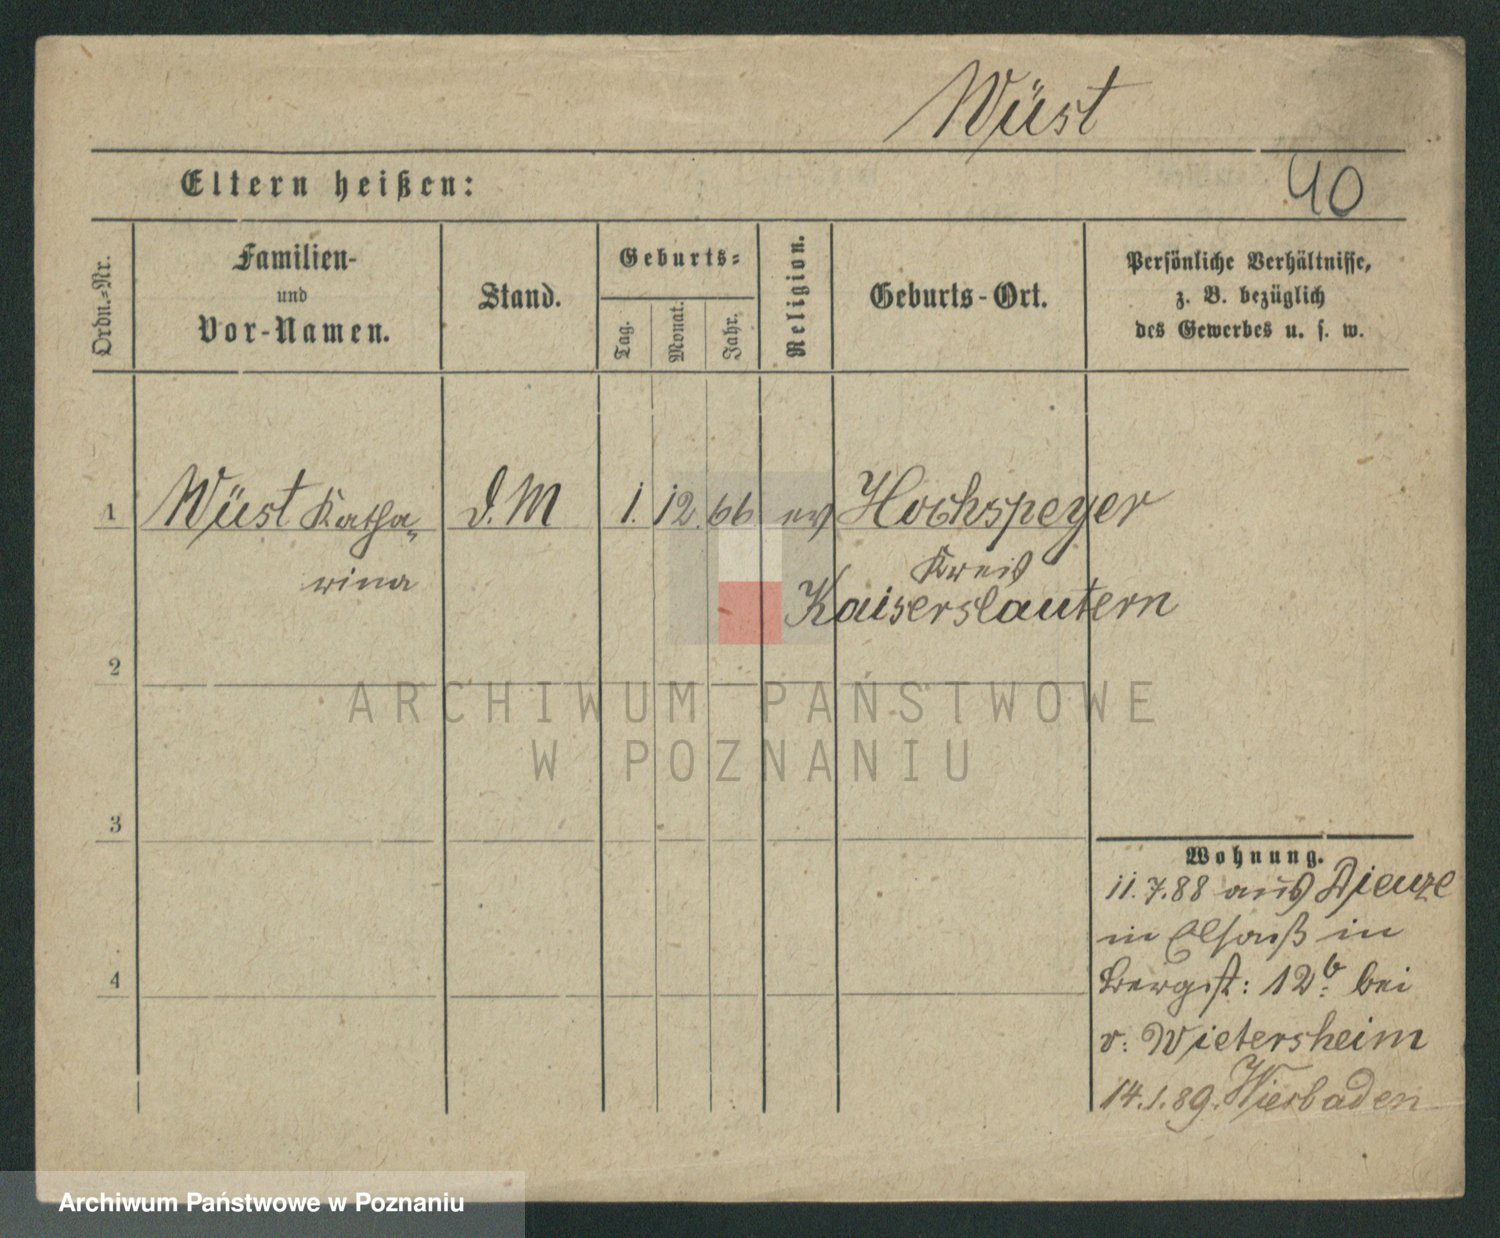 Wüst
Eltern heißen:
40
Ordn.-Nr.
Familien-
und
Vor-Namen.
Stand.
Geburts-
Tag.
Monat.
Jahr.
Religion.
Geburts-Ort.
Persönliche Verhältnisse,
z. B. bezüglich
des Gewerbes u. s. w.
1 Wüst Katha- d. M 1. 12. 66 ev Hochspeyer
rina Kreis
Kaiserslautern
2
ARCHIWUM PAŃSTWOWE
W POZNANIU
3
Wohnung.
11.7.88 aus Dieuze
in Elsaß in
4
Bergst: 12b: bei
v: Wietersheim
14.1.89. Wiesbaden
Archiwum Państwowe w Poznaniu